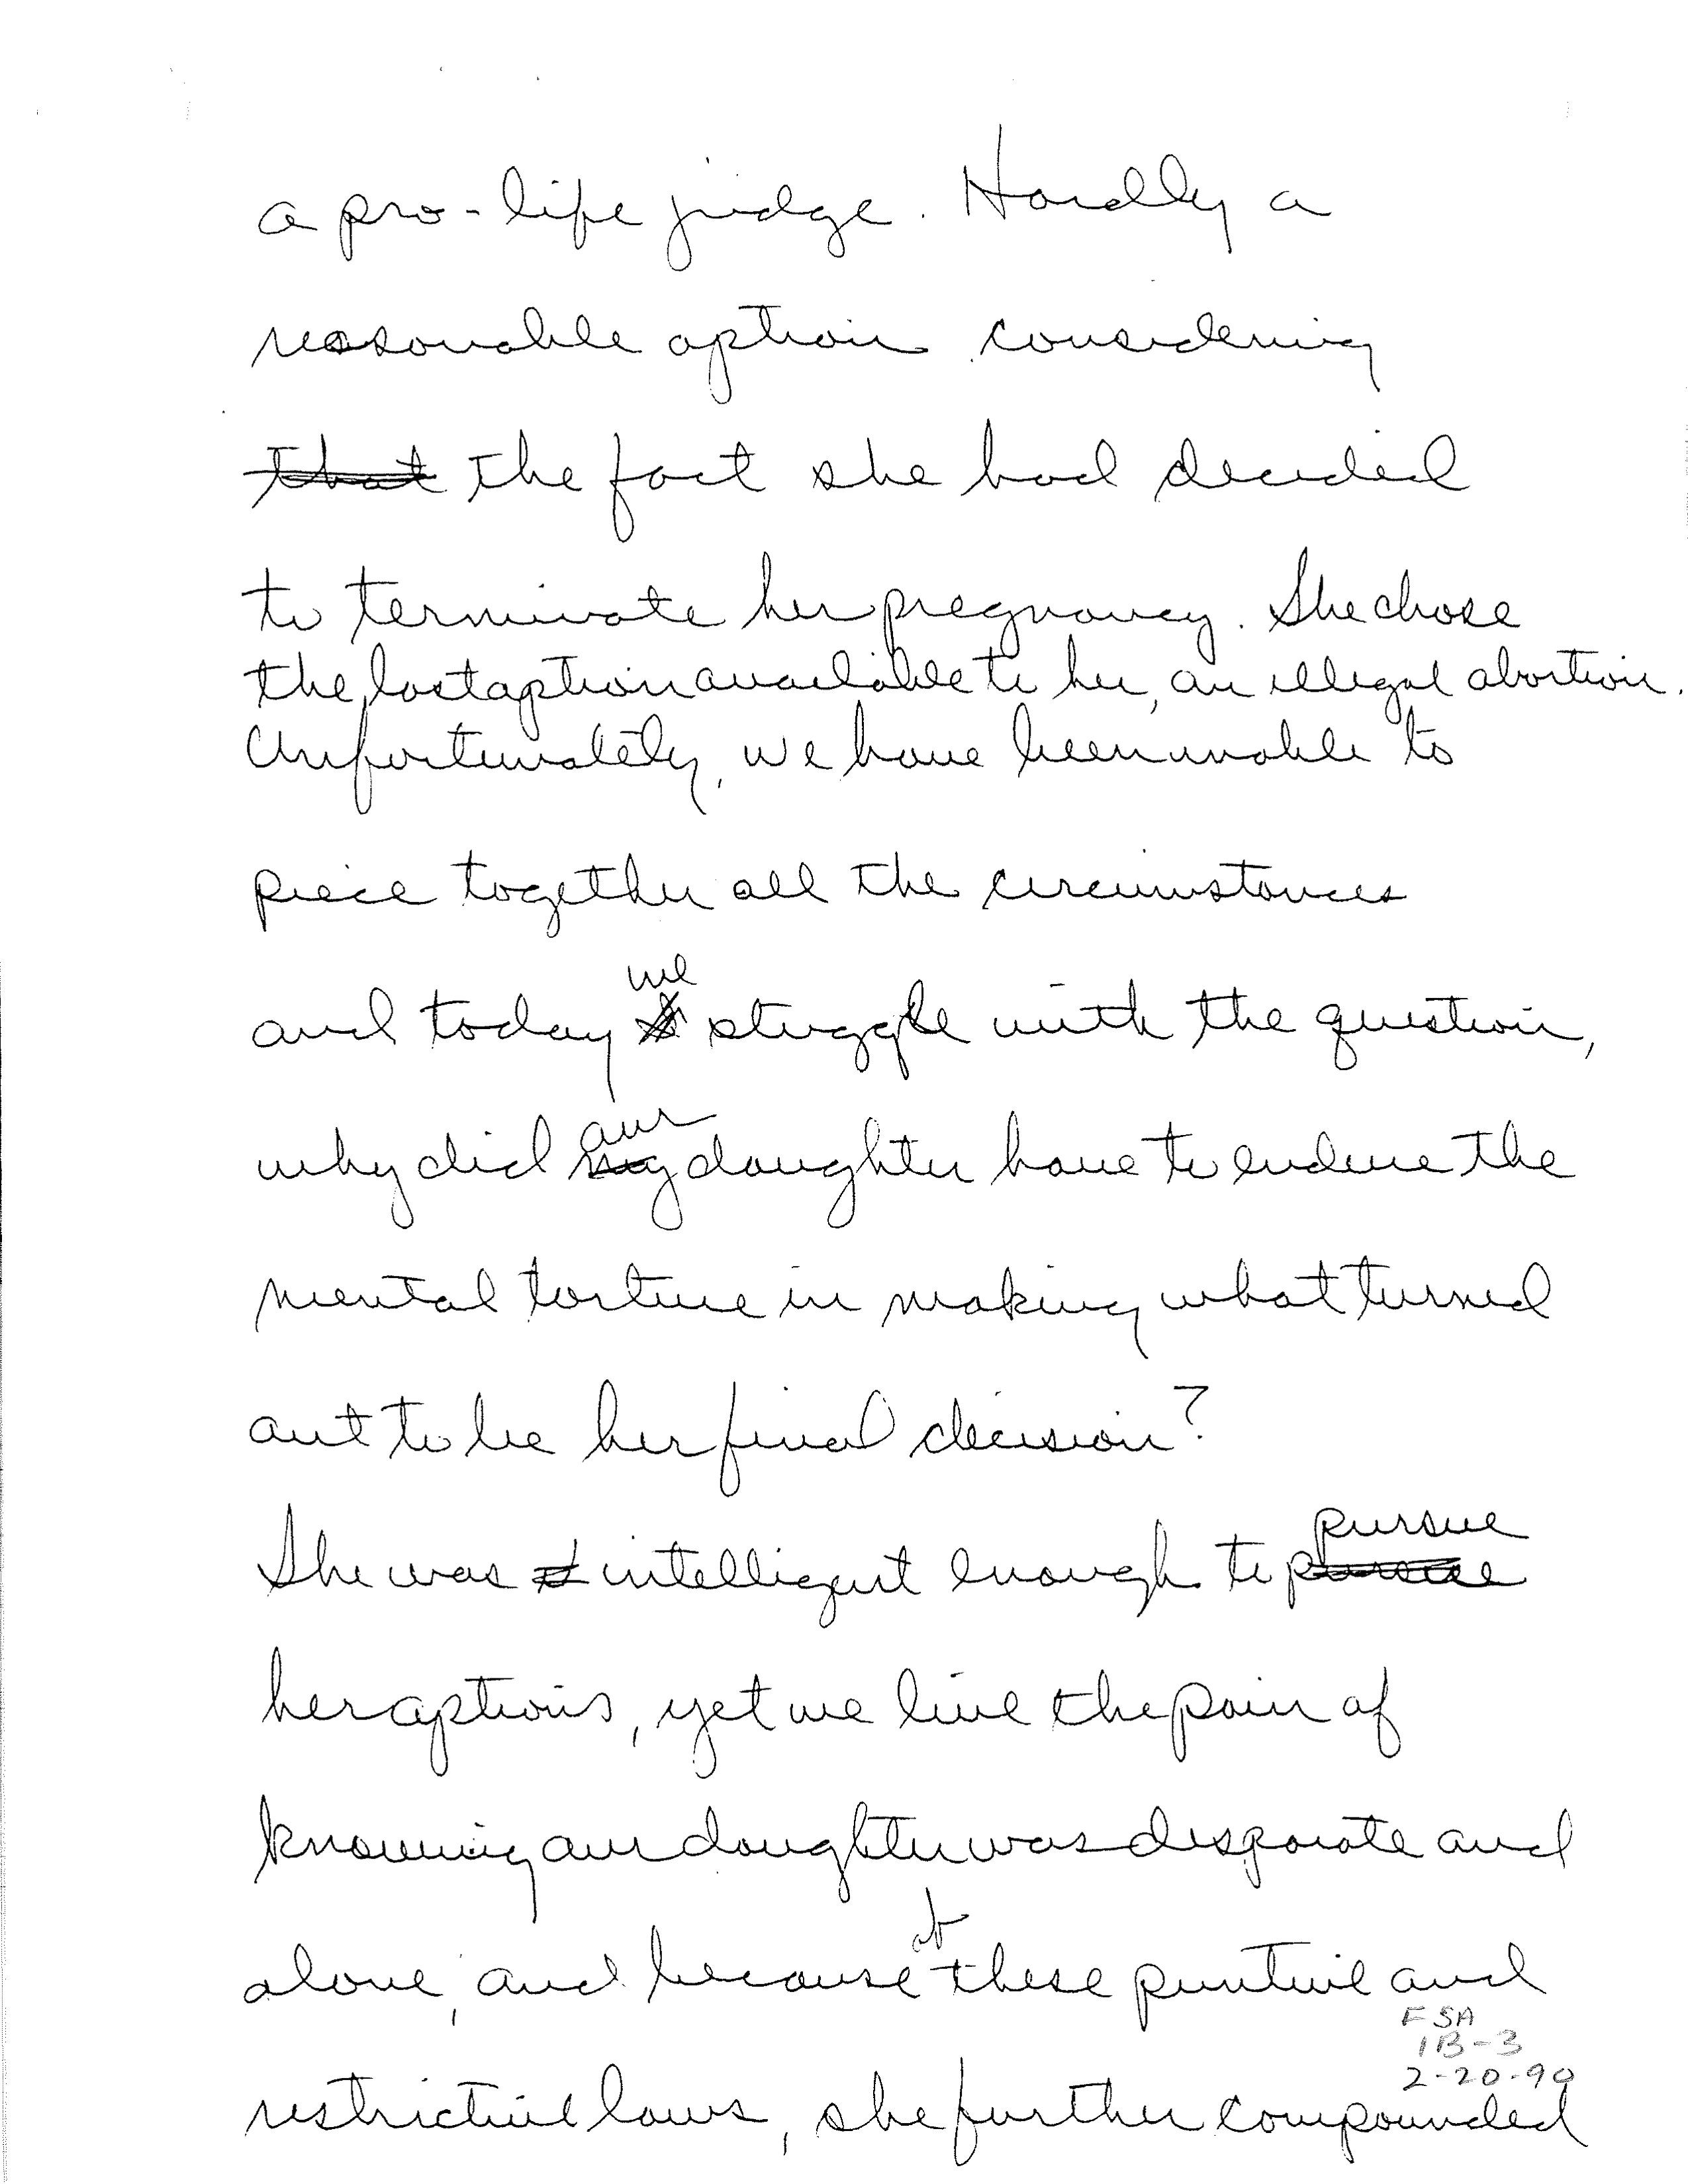 a pro-life judge. Hardly a
reasonable option considering
that the fact she had decided
to terminate her pregnancy. She chose
the last option available to her, an illegal abortion.
Unfortunately, we have been unable to
piece together all the circumstances
we
and today stuggle with the question,
our
why did my daughter have to endure the
mental torture in making what turned
out to be her final decision?
pursue
She was intelligent enough to pursue
her options, yet we live the pain of
knowing our daughter was desparate and
of
alone, and because these puntive and
FSA
1B-3
2-20-90
restrictive laws, she further compounded